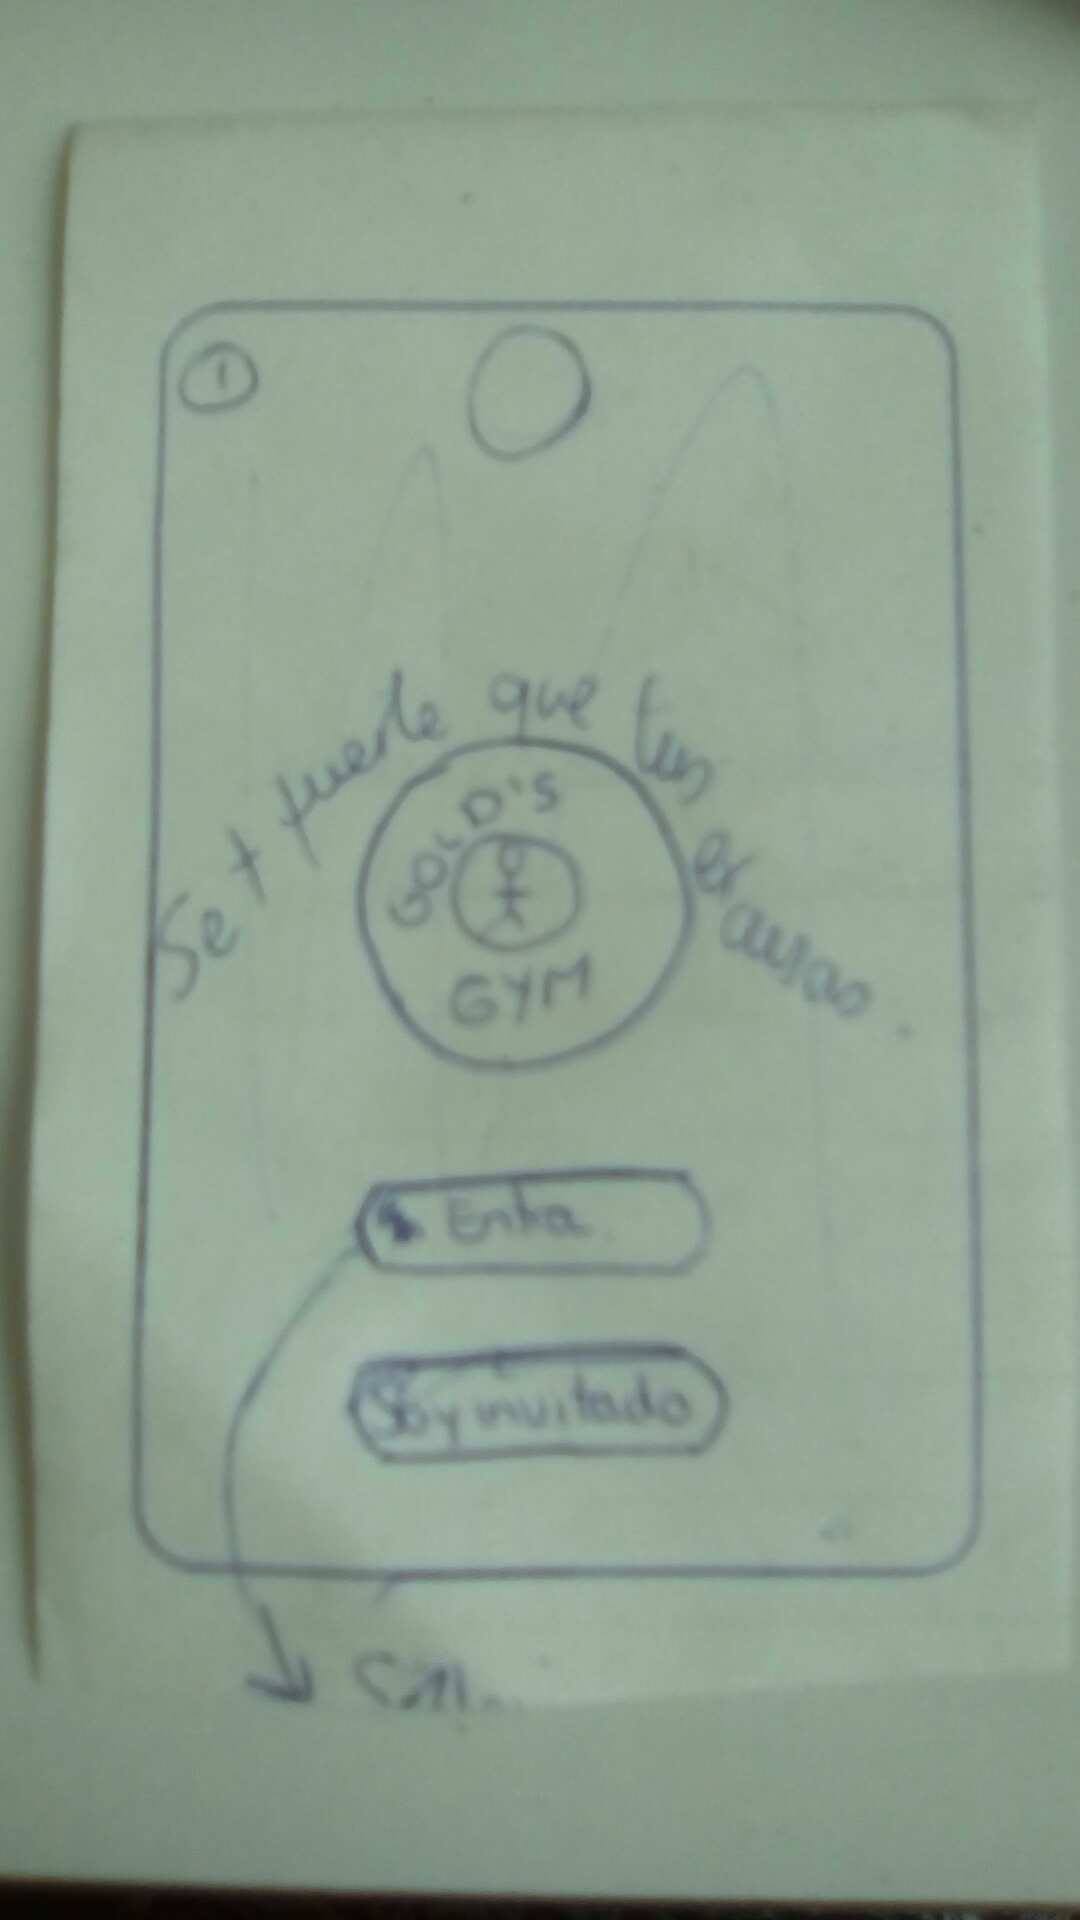 1
Se + fuerte que tus excusas.
GOLD'S
GYM
Entra
Soy invitado